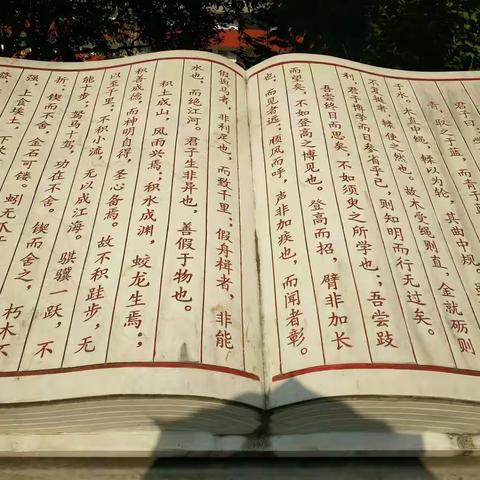 君子
青，取之于蓝，而青于蓝
于水。木直中绳，輮以为轮，其曲中规。
不复挺者，輮使之然也。故木受绳则直，金就砺则
利，君子博学而日参省乎己，则知明而行无过矣。
吾尝终日而思矣，不如须臾之所学也；吾尝跂
而望矣，不如登高之博见也。登高而招，臂非加长
也，而见者远；顺风而呼，声非加疾也，而闻者彰。
假舆马者，非利足也，而致千里；假舟楫者，非能
水也，而绝江河。君子生非异也，善假于物也。
积土成山，风雨兴焉；积水成渊，蛟龙生焉；
积善成德，而神明自得，圣心备焉。故不积跬步，无
以至千里；不积小流，无以成江海。骐骥一跃，不
能十步；驽马十驾，功在不舍。锲而舍之，朽木不
折；锲而不舍，金石可镂。蚓无爪
强，上食埃土，下